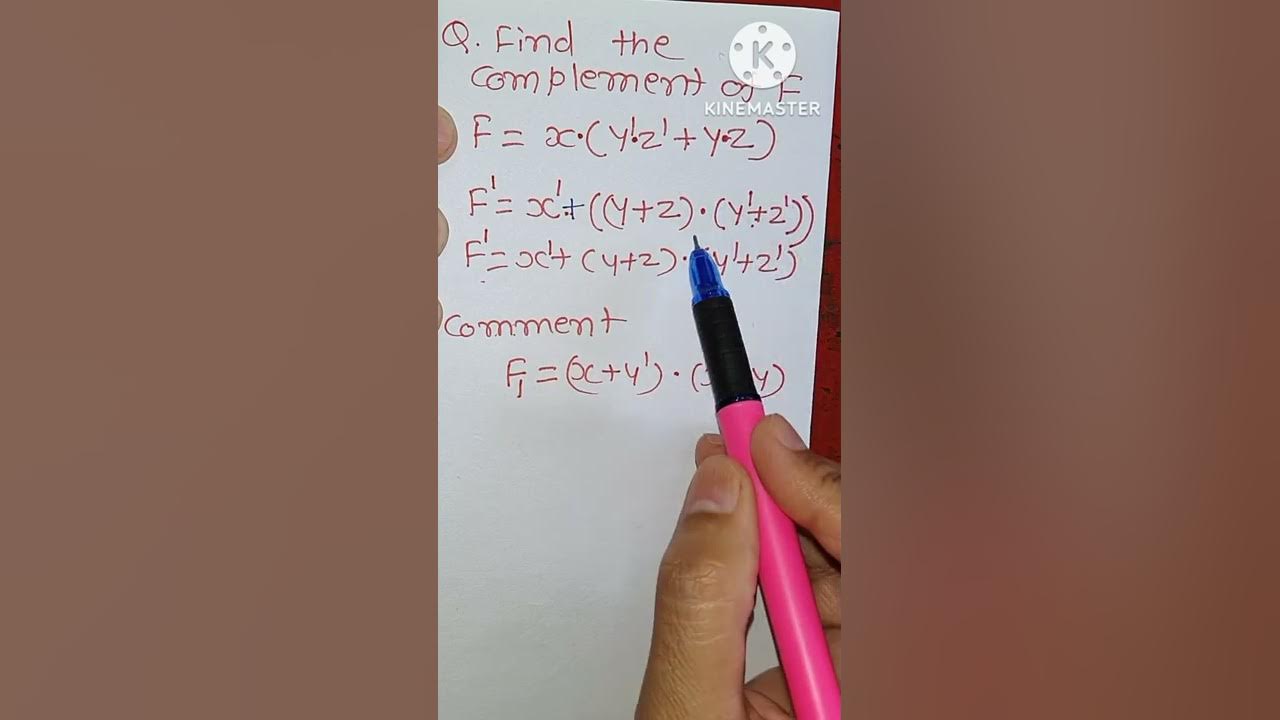 Q. Find the
complement of F
KINEMASTER
F = x·(y'·z' + y·z)
F' = x' + ((y+z)·(y'+z'))
F' = x' + (y+z)·(y'+z')
Comment
F₁ = (x+y')·( y)